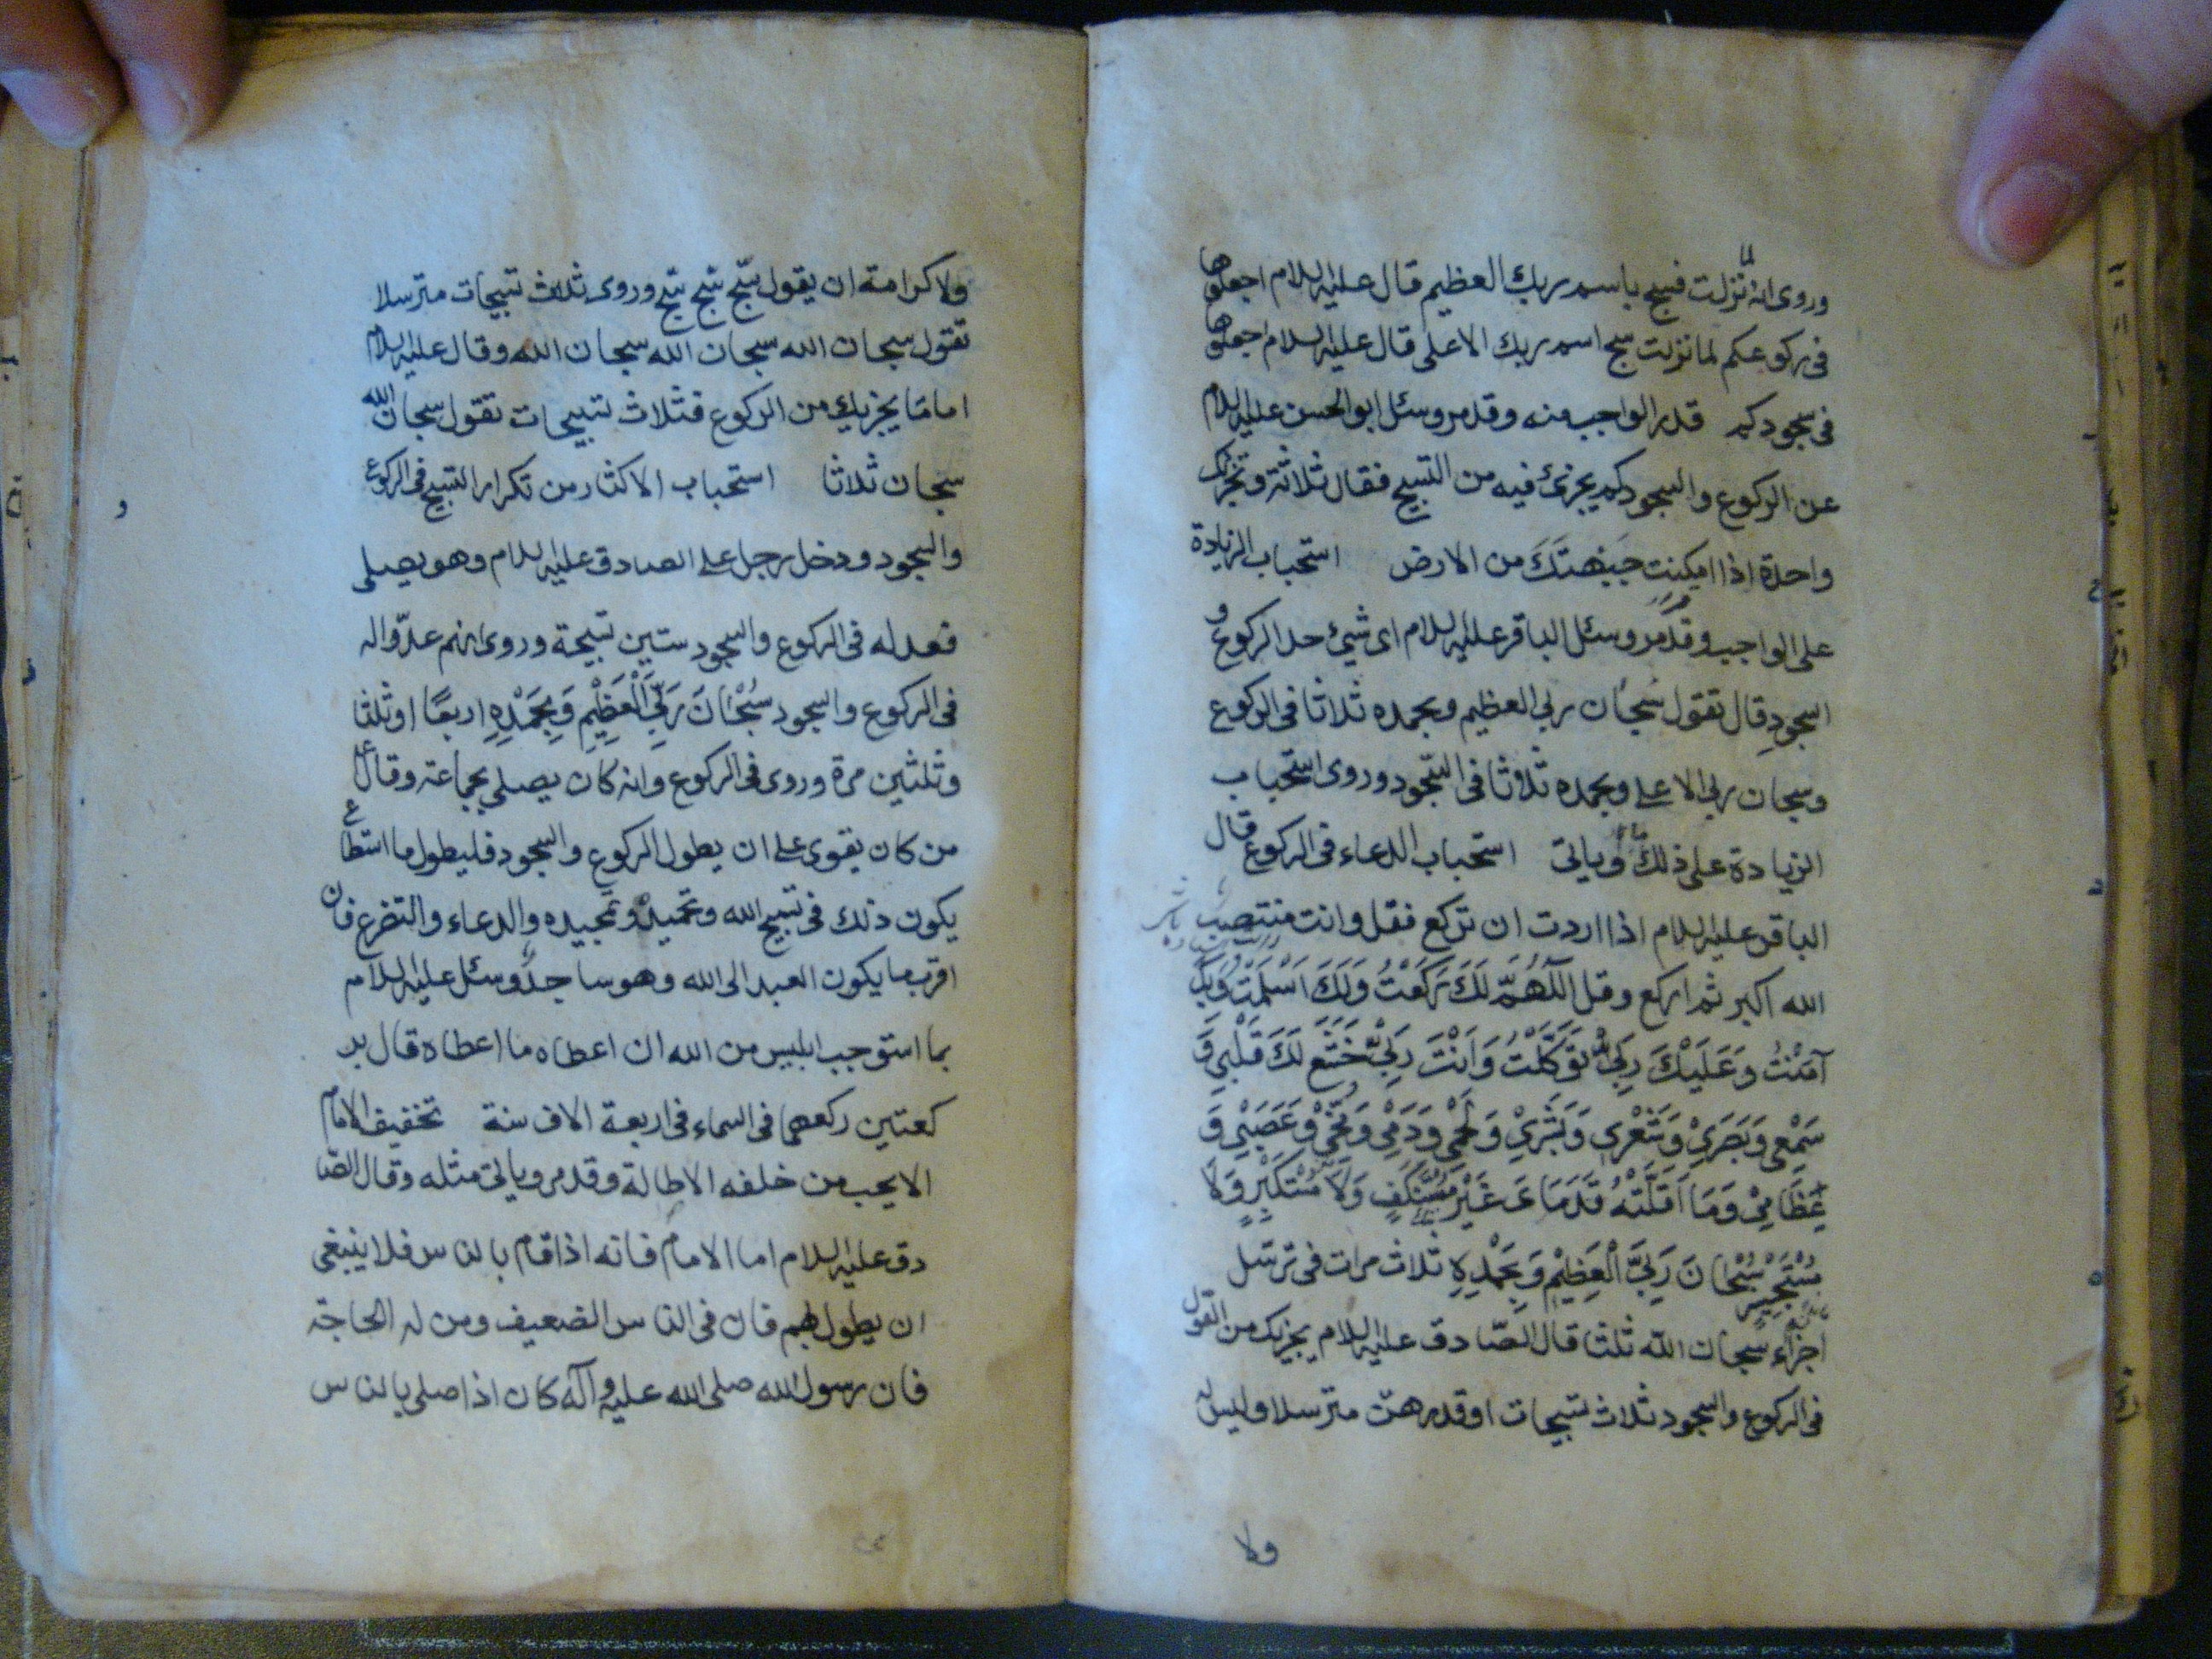 وروى انه لما نزلت فسبح باسم ربك العظيم قال عليه السلام اجعلوها
في ركوعكم لما نزلت سبح اسم ربك الاعلى قال عليه السلام اجعلوها
في سجودكم قدر الواجب منه وقد مر وسئل ابو الحسن عليه السلام
عن الركوع والسجود كم يجزئ فيه من التسبيح فقال ثلاثة وتجزيك
واحدة اذا امكنت جبهتك من الارض استحباب الزيادة
على الواجب وقد مر وسئل الباقر عليه السلام اى شيئ حد الركوع و
السجود قال تقول سبحان ربي العظيم وبحمده ثلاثا في الركوع
وسبحان ربي الاعلى وبحمده ثلاثا في السجود وروى استحباب
الزيادة على ذلك وياتي استحباب الدعاء في الركوع قال
الباقر عليه السلام اذا اردت ان تركع فقل وانت منتصب
الله اكبر ثم اركع وقل اَللّهُمَّ لَكَ رَكَعْتُ وَلَكَ اَسْلَمْتُ وَبِكَ
آمَنْتُ وَعَلَيْكَ تَوَكَّلْتُ وَاَنْتَ رَبِّي خَشَعَ لَكَ قَلْبِي وَ
سَمْعِي وَبَصَرِيْ وَشَعْرِي وَبَشَرِيْ وَلَحْمِي وَدَمِيْ وَمُخِّيْ وَعَصَبِيْ وَ
عِظَامِيْ وَمَا اَقَلَّتْهُ قَدَمَايَ غَيْرَ مُسْتَنْكِفٍ وَلَا مُسْتَكْبِرٍ وَلَا
مُسْتَحْسِرٍ سُبْحَانَ رَبِّيَ الْعَظِيْمِ وَبِحَمْدِهِ ثلاث مرات في ترسل
اجزاء سبحان الله ثلثا قال الصّادق عليه السلام يجزيك من القول
في الركوع والسجود ثلاث تسبيحات او قدرهن مترسلا وليس له
ولا
ولا كرامة ان يقول سبّح سبّح سبّح وروى ثلاث تسبيحات مترسلا
تقول سبحان الله سبحان الله سبحان الله وقال عليه السلام
اما ما يجزيك من الركوع فثلاث تسبيحات تقول سبحان الله
سبحان ثلاثا استحباب الاكثار من تكرار التسبيح في الركوع
والسجود ودخل رجل على الصادق عليه السلام وهو يصلي
فعد له في الركوع والسجود ستين تسبيحة وروى انهم عدّوا له
في الركوع والسجود سُبْحَانَ رَبِّيَ الْعَظِيْمِ وَبِحَمْدِهِ اربعًا او ثلثا
وثلثين مرة وروى في الركوع وانه كان يصلي بجماعة وقال ع
من كان يقوى على ان يطول الركوع والسجود فليطول ما استطاع
يكون ذلك في تسبيح الله وتحميده وتمجيده والدعاء والتضرع فان
اقرب ما يكون العبد الى الله وهو ساجد وسئل عليه السلام
بما استوجب ابليس من الله ان اعطاه ما اعطاه قال بر
كعتين ركعهما في السماء في اربعة الاف سنة تخفيف الامام
الا يحب من خلفه الاطالة وقد مر وياتي مثله وقال الصّا
دق عليه السلام اما الامام فانه اذا قام بالناس فلا ينبغي
ان يطول بهم فان في الناس الضعيف ومن له الحاجة
فان رسول الله صلى الله عليه وآله كان اذا صلى بالناس